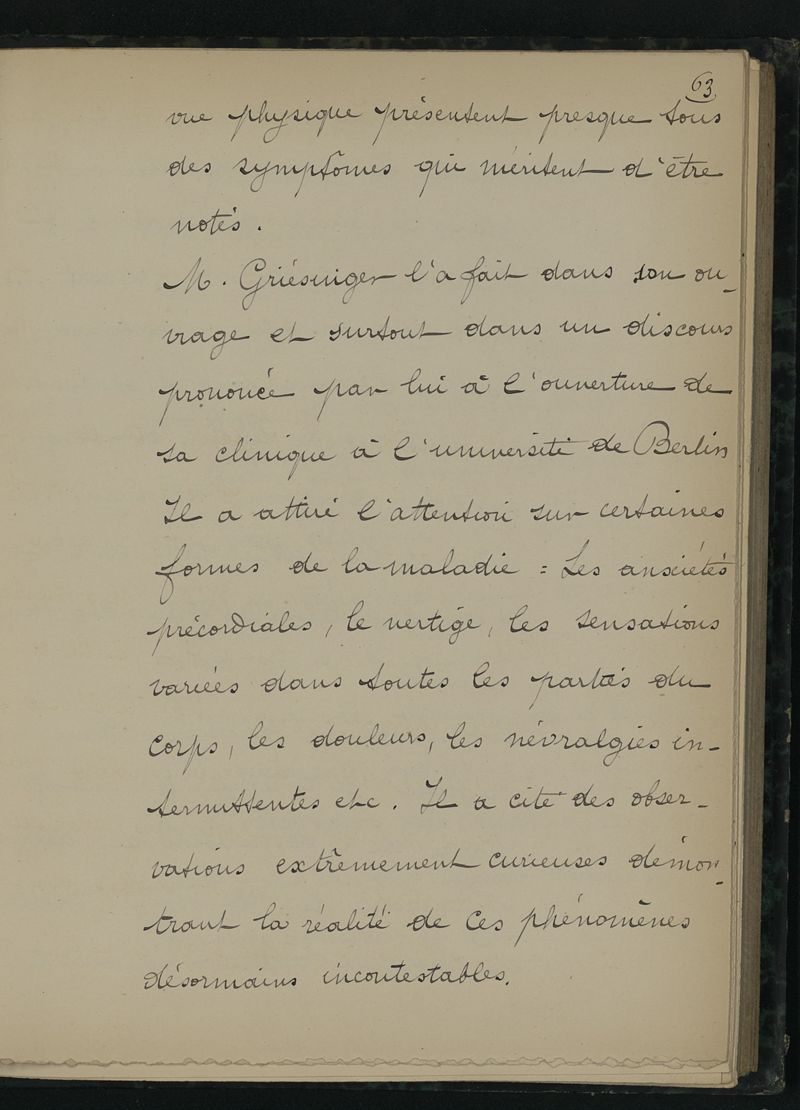 63
vue physique présentent presque tous
des symptômes qui méritent d'être
notés.
M. Griésinger l'a fait dans son ou-
vrage et surtout dans un discours
prononcée par lui à l'ouverture de
sa clinique à l'université de Berlin
Il a attiré l'attention sur certaines
formes de la maladie : Les anxiétés
précordiales, le vertige, les sensations
variées dans toutes les parties du
corps, les douleurs, les névralgies in-
termittentes etc. Il a cité des obser-
vations extrêmement curieuses démon-
trant la réalité de ces phénomènes
désormains incontestables.